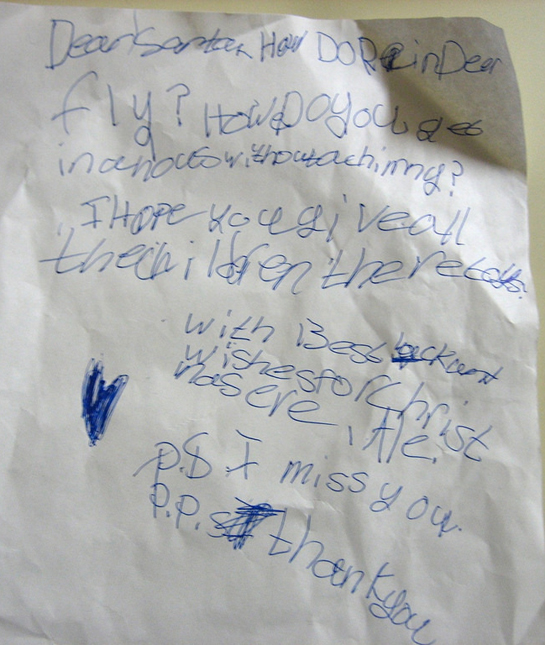 Dear Santa, How DO ReinDear
fly? How DO you get
in a house without a chimny?
I Hope you give all
the children there toys.
with Bess
wishes for Christ
mas eve
P.S I miss you.
P.P.S thank you